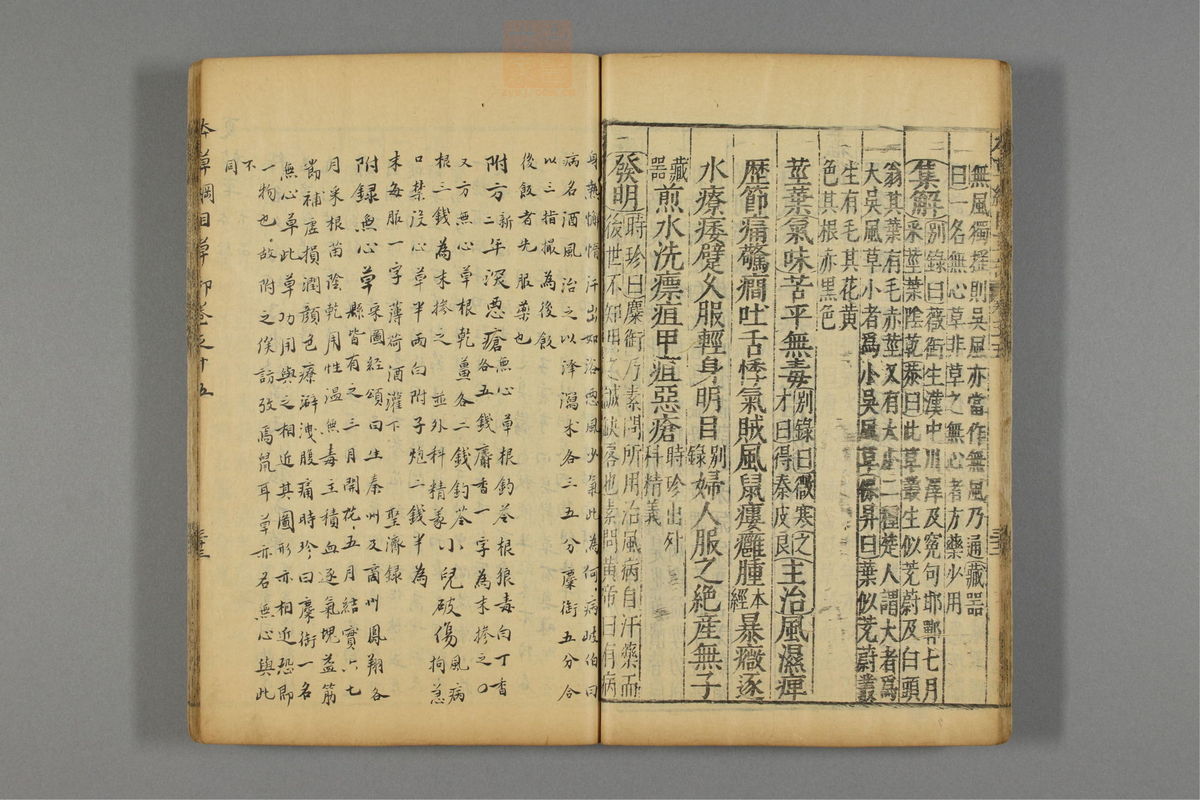 無風獨搖則吳風亦當作無風乃通藏器
曰一名無心草非草之無心者方藥少用
集解别錄曰薇銜生漢中川澤及寃句邯鄲七月
采莖葉陰乾恭曰此草叢生似茺蔚及白頭
翁其葉有毛赤莖又有大小二種楚人謂大者爲
大吳風草小者爲小吳風草保昇曰葉似茺蔚叢
生有毛其花黄
色其根赤黑色
莖葉氣味苦平無毒别錄曰微寒之才曰得秦皮良主治風濕痺
歷節痛驚癇吐舌悸氣賊風鼠瘻癰腫本經暴癥逐
水療痿躄久服輕身明目别錄婦人服之絶産無子
藏器煎水洗瘭疽甲疽惡瘡時珍出外科精義
發明時珍曰麋銜乃素問所用治風病自汗藥而
後世不知用之誠缺畧也素問黄帝曰有病
身熱懈惰汗出如浴惡風少氣此為何病岐伯曰
病名酒風治之以泽瀉术各三五分麋銜五分合
以三指撮為後飯
後飯者先服藥也
附方新二年深惡瘡無心草根釣苓根狼毒白丁香
各五錢麝香一字為末掺之〇
又方無心草根乾薑各二錢釣苓
根三錢為末掺之並外科精義小兒破傷風病拘急
口禁没心草半两白附子炮二錢半為
末每服一字薄荷酒灌下聖濟録
附録無心草宷圖經頌曰生秦州及商州鳳翔各
縣皆有之三月開花五月結實六七
月采根苗陰乾用性温無毒主積血逐氣塊益筋
節補虚損潤顔色療澼洩腹痛時珍曰麋銜一名
無心草此草功用與之相近其圖形亦相近恐即
一物也故附之俟訪攷焉鼠耳草亦名無心與此
不
同
本草綱目草部卷之十五